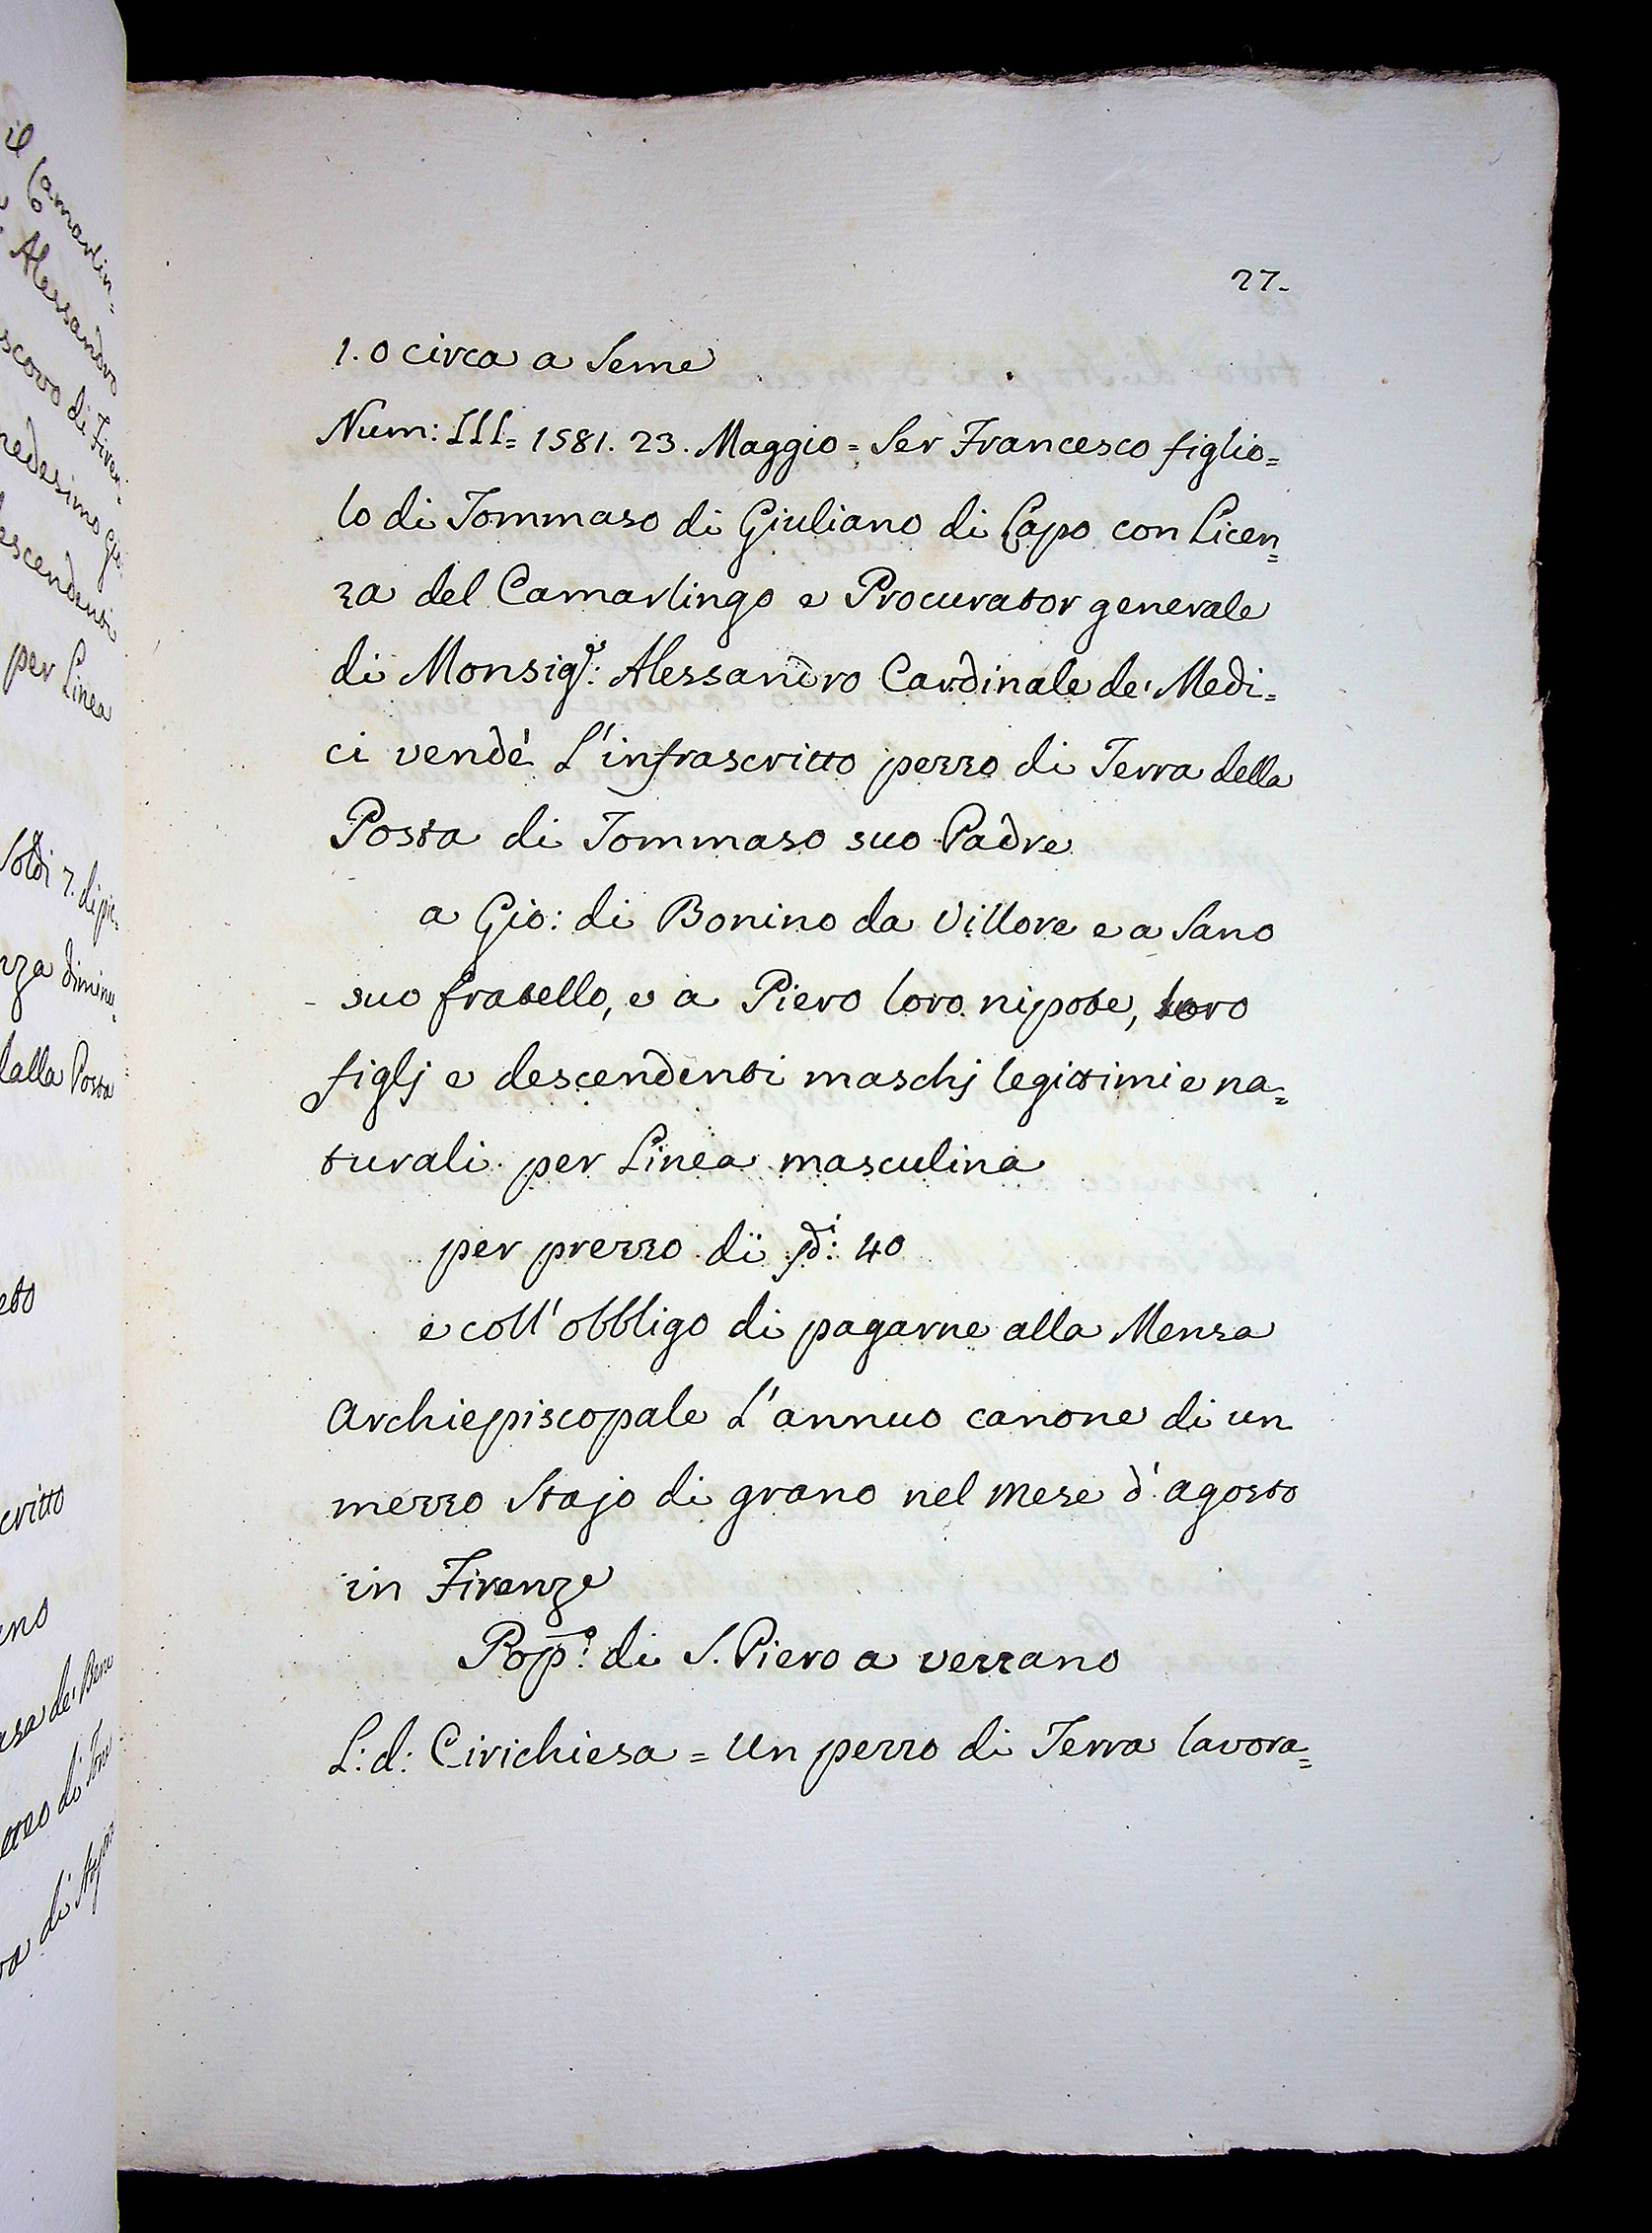 27.
1. o circa a Seme
Num: III= 1581. 23. Maggio = Ser Francesco figlio=
lo di Tommaso di Giuliano di Lapo con Licen=
za del Camarlingo e Procurator generale
di Monsigr: Alessandro Cardinale de' Medi=
ci vendé L'infrascritto pezzo di Terra della
Posta di Tommaso suo Padre
a Gio: di Bonino da Villore e a Sano
suo fratello, e a Piero loro nipote, loro
figlj e descendenti maschj legittimi e na=
turali per Linea masculina
per prezzo di 40
e coll'obbligo di pagarne alla Mensa
Archiepiscopale L'annuo canone di un
mezzo Stajo di grano nel mese d'agosto
in Firenze
Popo: di S. Piero a vezzano
L: d: Cirichiesa = Un pezzo di Terra lavora=
il Camarlin=
Alessandro
scovo di Firen
descendenti
per Linea
Soldi 7. di pic
nza diminu
dalla Posta
critto